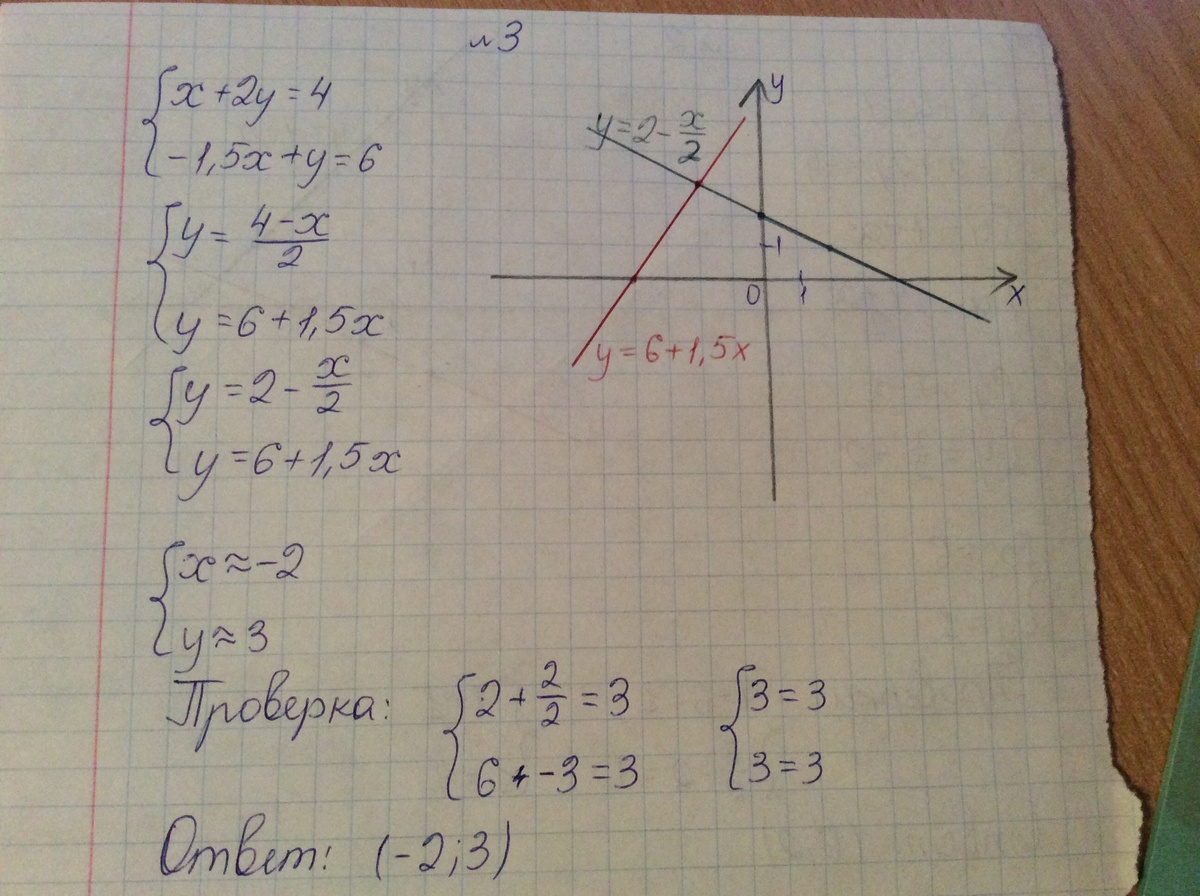 №3
{x+2y=4
{-1,5x+y=6
{y=(4-x)/2
{y=6+1,5x
{y=2-x/2
{y=6+1,5x
{x≈-2
{y≈3
y
y=2-x/2
1
0 1 x
y=6+1,5x
Проверка: {2+2/2=3 {3=3
{6+-3=3 {3=3
Ответ: (-2;3)